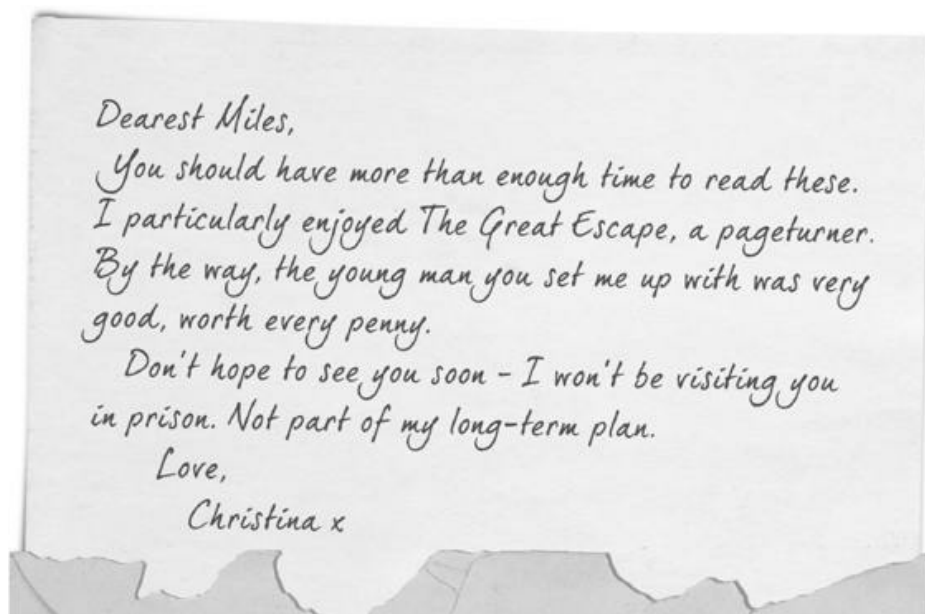 Dearest Miles,
You should have more than enough time to read these.
I particularly enjoyed The Great Escape, a pageturner.
By the way, the young man you set me up with was very
good, worth every penny.
Don't hope to see you soon – I won't be visiting you
in prison. Not part of my long-term plan.
Love,
Christina x